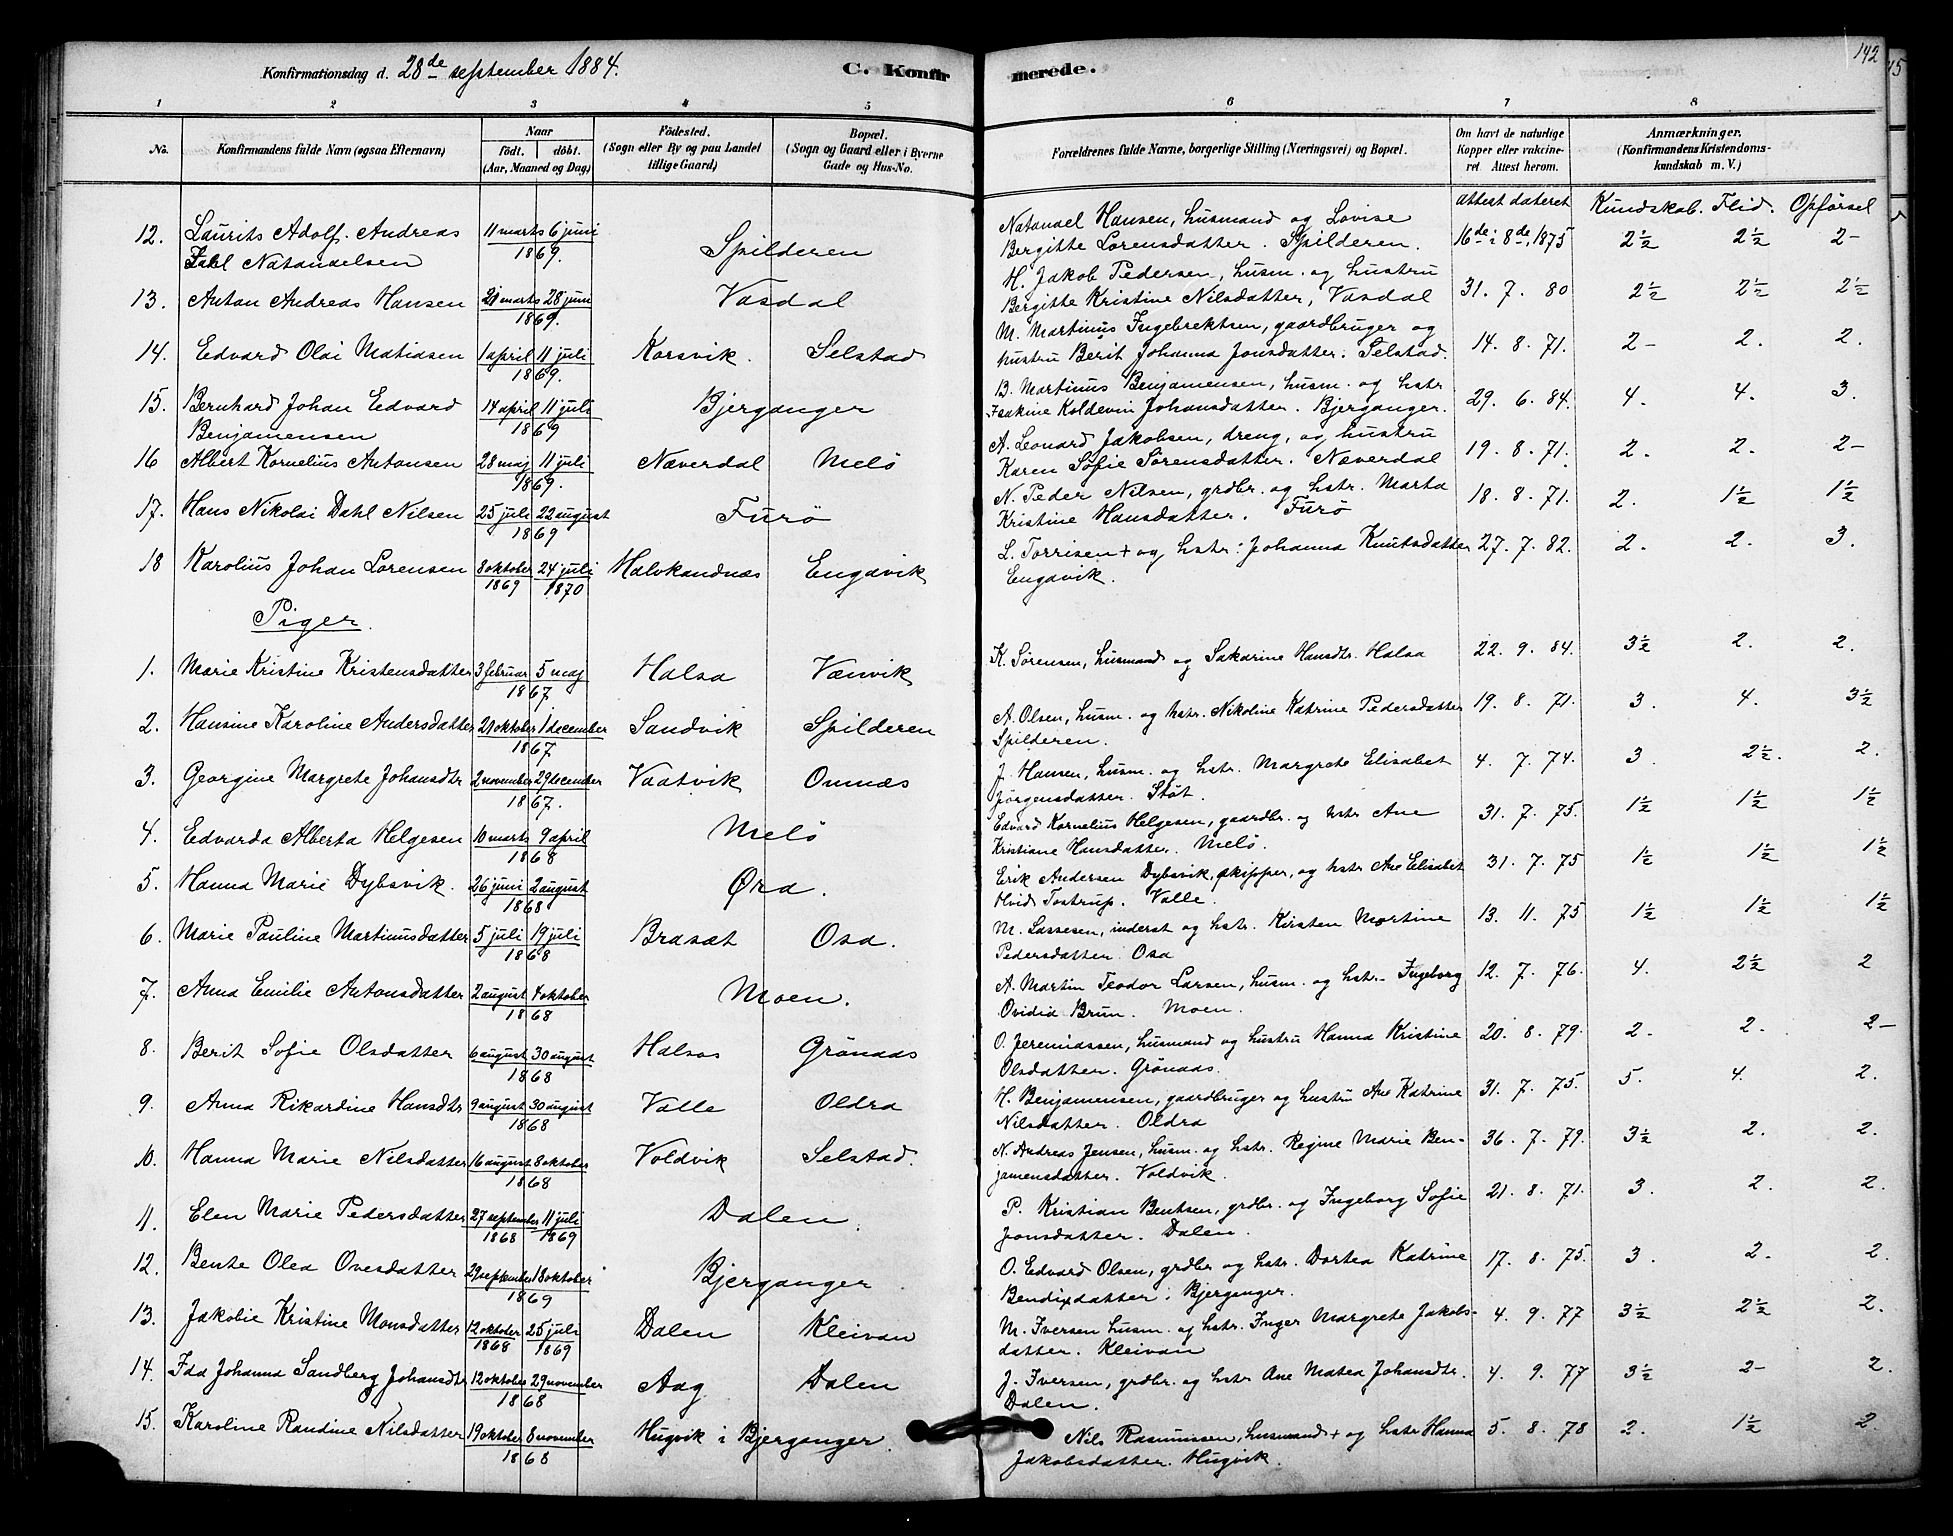 142
Konfirmationsdag d. 28de september 1884.
C. Konfirmerede.
1 2 3 4 5 6 7 8
No. Konfirmandens fulde Navn (ogsaa Efternavn) Naar født. døbt. (Aar, Maaned og Dag) Födested. (Sogn eller By og paa Landet tillige Gaard) Bopæl. (Sogn og Gaard eller i Byerne Gade og Hus-No. Forældrenes fulde Navne, borgerlige Stilling (Næringsvei) og Bopæl. Om havt de naturlige Kopper eller vakcineret Attest herom. Anmærkninger. (Konfirmandens Kristendomskundskab m. V.)
Attest dateret Kundskab. Flid. Opførsel
12. Laurits Adolf Andreas Natanaelsen 11 marts 6 juni 1869. Spilderen Natanael Hansen, husmand og Lovise Bergitte Lorensdatter. Spilderen. 16de i 8de, 1875 2½ 2½ 2-
13. Antan Andreas Hansen 21 marts 28 juni 1869. Vasdal H. Jakob Pedersen, husm. og hustru Bergitte Kristine Nilsdatter, Vasdal 31. 7. 80 2½ 2½ 2½
14. Edvard Olai Matiasen 1 april 11 juli 1869. Korsvik. Selstad M. Martinus Ingebrektsen, gaardbruger og hustru Berit Johanna Jonsdatter. Selstad. 14. 8. 71. 2- 2. 2.
15. Bernhard Johan Edvard Benjamensen 14 april 11 juli 1869 Bjerganger B. Martinus Benjamensen, husm. og hstr Isakine Koldevin Johansdatter. Bjerganger. 29. 6. 84. 4. 4. 3.
16 Albert Kornelius Antonsen 28 maj 11 juli 1869. Næverdal Melö A. Leonard Jakobsen, dreng, og hustru Karen Sofie Sørensdatter. Næverdal 19. 8. 71. 2. 2. 2-
17. Hans Nikolai Dahl Nilsen 25 juli 22 august 1869 Furö N. Peder Nilsen, grdbr. og hstr. Marta Kristine Hansdatter. Furö 18. 8. 71. 2. 1½ 1½
18 Karolius Johan Lorensen 8 oktober 1869 24 juli 1870 Halvkandnæs Engavik L. Torrisen + og hstr. Johanna Knutsdatter Engavik. 27. 7. 82. 2. 2. 3.
Piger.
1. Marie Kristine Kristensdatter 3 februar 5 maj 1867 Halsa Vænvik K. Sørensen, husmand og Sakarine Hansdtr. Halsa 22. 9. 84. 3½ 2. 2.
2. Hansine Karoline Andersdatter 21 oktober 1 december 1867 Sandvik Spilderen A. Olsen, husm. og hstr. Nikoline Katrine Pedersdatter Spilderen. 19. 8. 71. 3. 4. 3½
3. Georgine Margrete Johansdtr 2 november 29 december 1867. Vaatvik Omnæs J. Hansen, husm. og hstr. Margrete Elisabet Jörgensdatter. Støt. 4. 7. 74. 3. 2½. 2.
4. Edvarda Alberta Helgesen 10 marts 9 april 1868 Melö Edvard Kornelius Helgesen, gaardbr. og hstr Ane Kristiane Hansdatter. Melö. 31. 7. 75. 1½ 1½ 1½
5. Hanna Marie Dybsvik. 26 juni 2 august 1868 Øra. Erik Andersen Dybsvik, skipper, og hstr Ane Elisabet Hvid Tostrup. Valle. 31. 7. 75 1½ 1½ 1½
6. Marie Pauline Martinusdatter 5 juli 19 juli 1868 Brasæt Osa. M. Lassesen, inderst og hstr. Kirsten Martine Pedersdatter Osa 13. 11. 75 1½ 1½ 1½
7. Anna Emilie Antonsdatter 2 august 4 oktober 1868 Moen. A. Martin Teodor Larsen, husm. og hstr. Ingeborg Ovidia Brun. Moen. 12. 7. 76. 4. 2½ 2
8. Berit Sofie Olsdatter 6 august 30 august 1868 Halsos Grönaas O. Jeremiassen, husmand og hustru Hanna Kristine Olsdatter. Grönaas. 20. 8. 79. 2. 2. 2-
9. Anna Rikardine Hansdtr 9 august 30 august 1868 Valle Oldra H. Benjamensen, gaardbruger og hustru Ane Katrine Nilsdatter. Oldra 31. 7. 75. 5. 4. 2.
10. Hanna Marie Nilsdatter 16 august 8 oktober 1868 Voldvik Selstad. N. Andreas Jensen, husm. og hstr. Regine Marie Benjamensdatter. Voldvik. 36. 7. 79. 3½ 2. 2.
11. Elen Marie Pedersdatter 27 september 1868 11 juli 1869 Dalen. P. Kristian Bentsen, grdbr. og Ingeborg Sofie Jonsdatter. Dalen. 21. 8. 71. 3. 2. 2.
12. Bente Olea Ovesdatter 29 september 18 oktober 1869 Bjerganger O. Edvard Olsen, grdbr og hstr. Dortea Katrine Bendixdatter. Bjerganger. 17. 8. 75. 3. 2. 2.
13. Jakobie Kristine Monsdatter 12 oktober 1868 25 juli 1869 Dalen Kleivan M. Iversen husm. og hstr. Inger Margrete Jakobsdatter. Kleivan 4. 9. 77 3½ 2½ 2.
14. Ida Johanna Sandberg Johansdtr 12 oktober 29 november 1868 Aag Dalen J. Iversen, grdbr. og hstr Ane Matea Johansdtr. Dalen. 4. 9. 77 3½ 2- 2.
15. Karoline Randine Nilsdatter 19 oktober 8 november 1868 Hugvik i Bjerganger. Nils Rasmussen, husmand + og hstr Hanna Jakobsdatter. Hugvik. 5. 8. 78 2. 1½ 2.